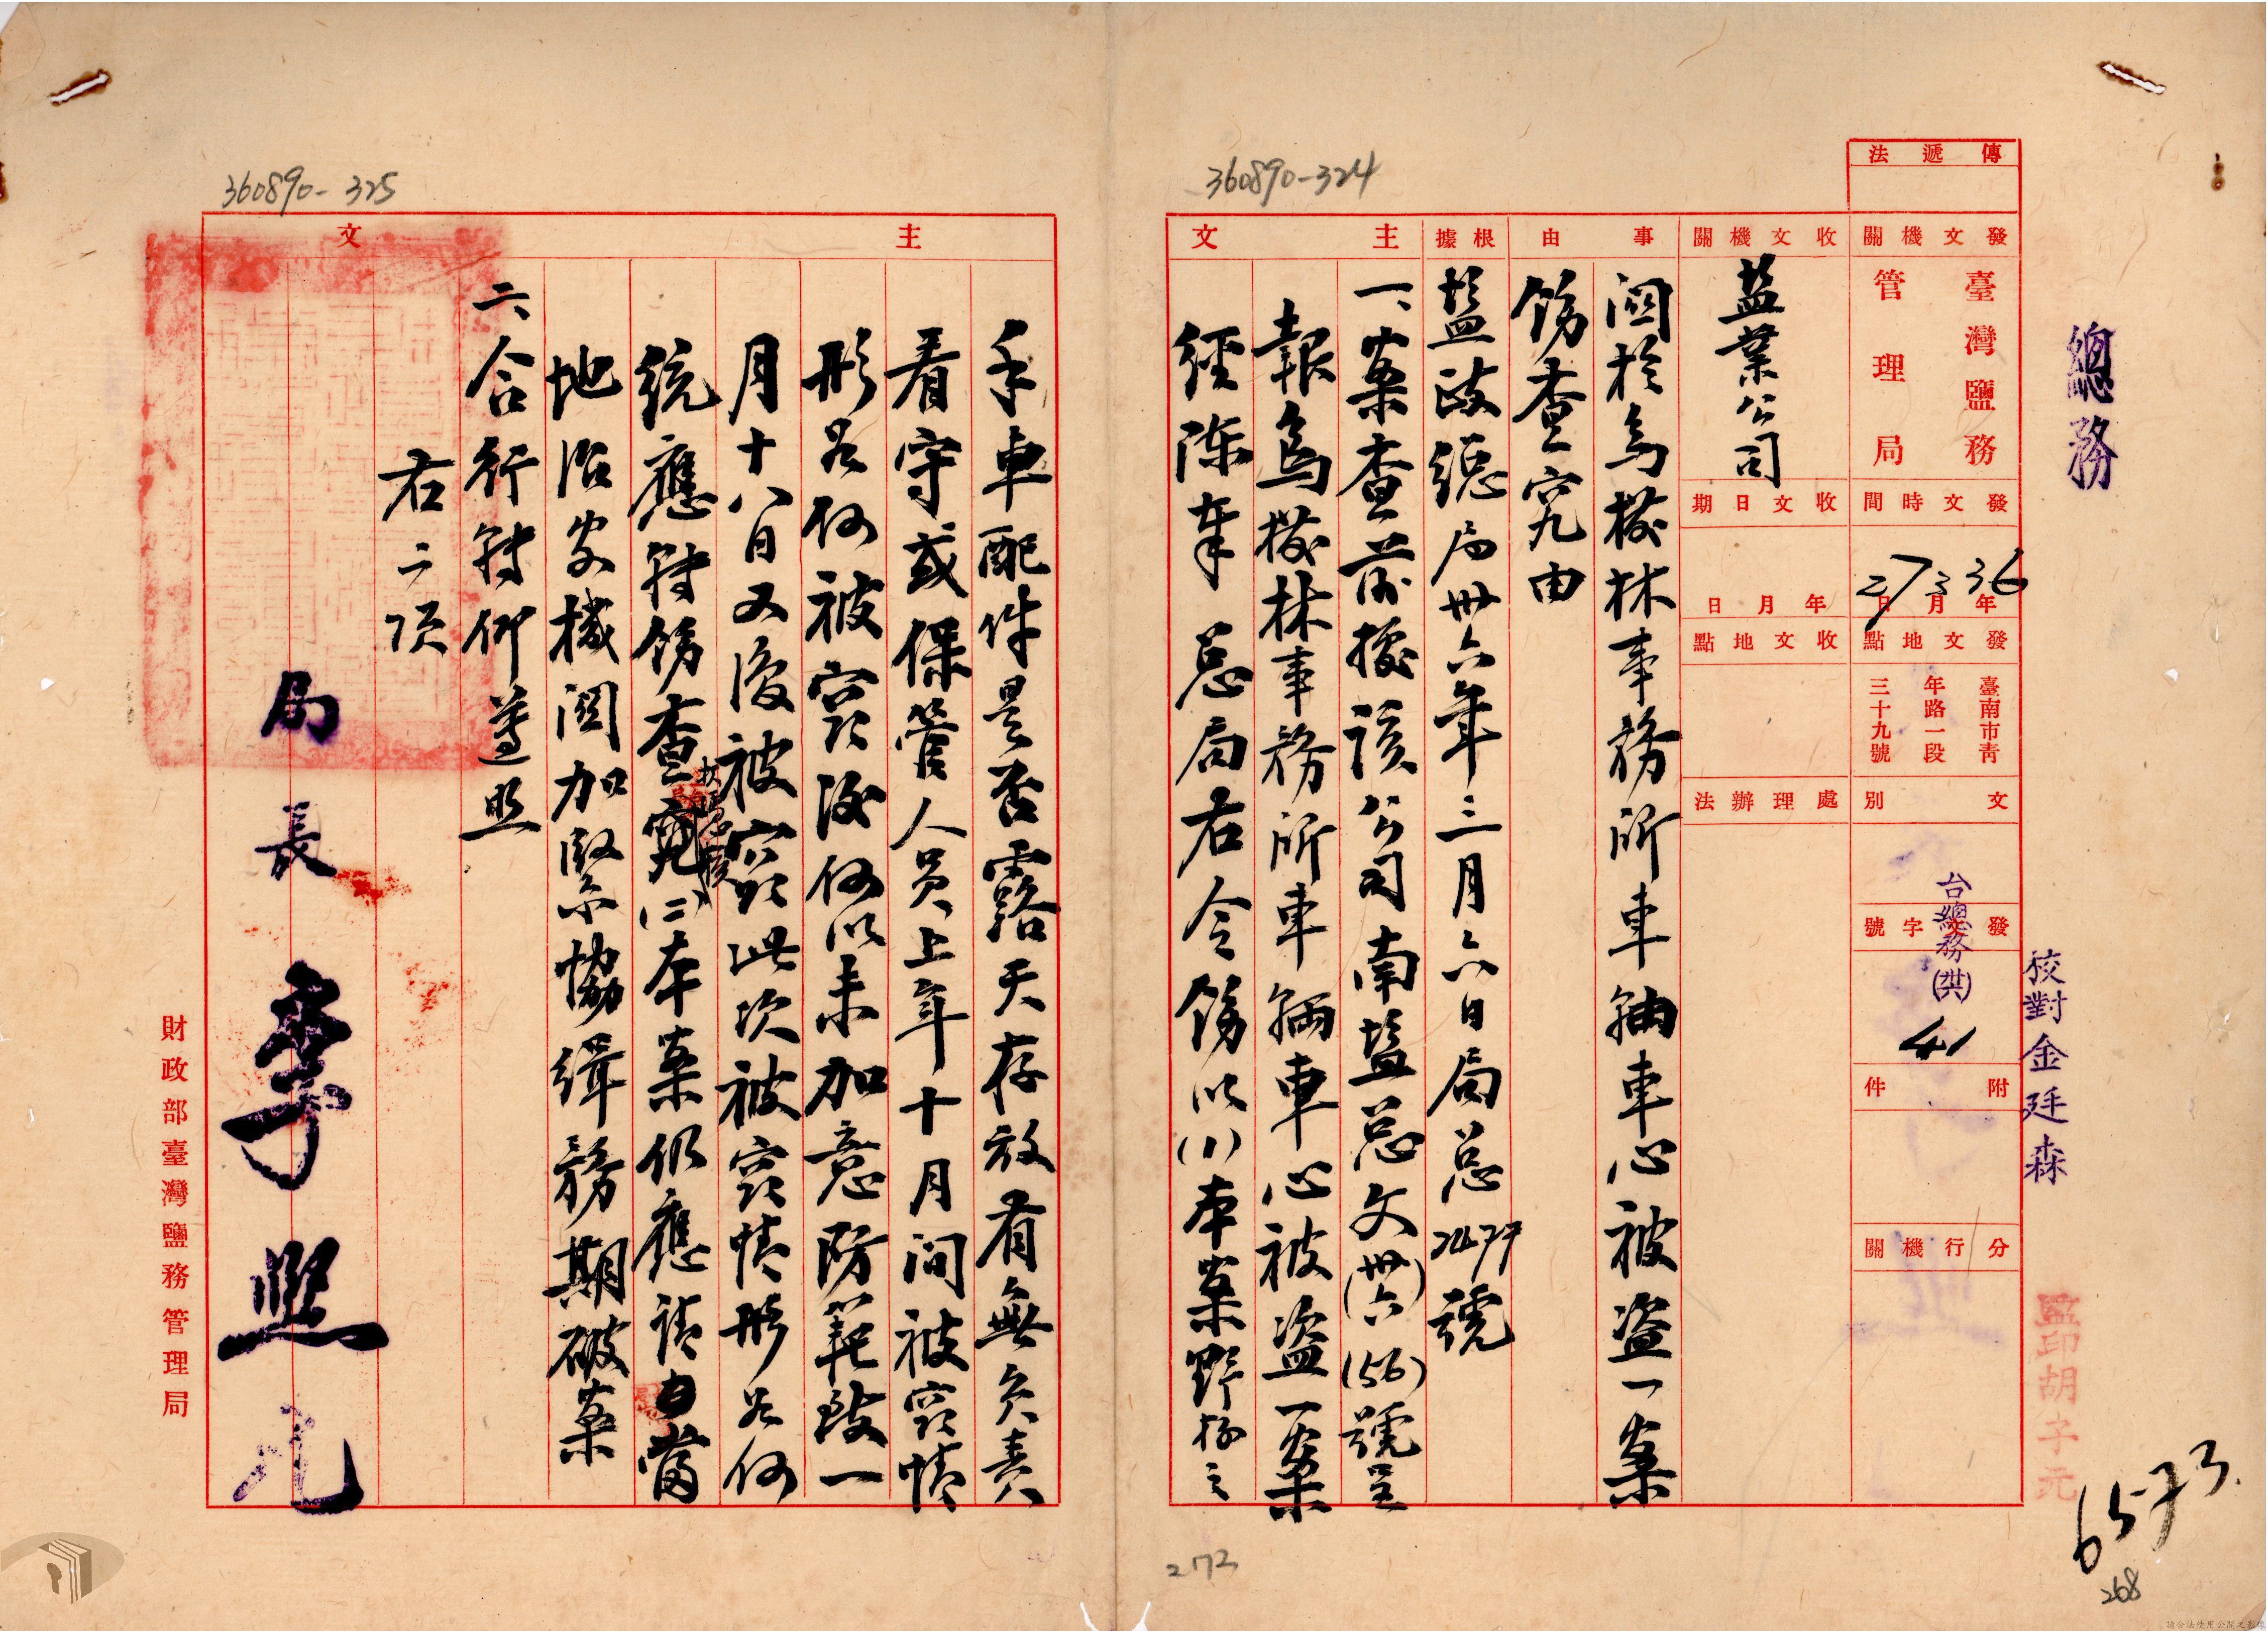 總務
校對金廷森
監印胡子元
6573.
268
傳遞法
發文機關
臺灣鹽務
管理局
發文時間
36年3月27日
發文地點
臺南市青
年路一段
三十九號
文別
發文字號
台總務(卅六)
41
附件
分行機關
收文機關
盐業公司
收文日期
年月日
收文地點
處理辦法
事由
關於烏樹林事務所車軸車心被盗一案
飭查究由
根據
盐政總局卅六年三月六日局总2479號
360890-324
主文
一、案查前據該公司南盐总文(卅六)(56)號呈
報烏樹林事務所車輛車心被盗一案
經陳奉 总局右令飭以(1)本案野存之
272
360890-325
主文
手車配件是否露天存放有無負責
看守或保管人員上年十月间被窃情
形若何被窃後何以未加意防範致一
月十八日又復被窃此次被窃情形若何
統應轉飭查究(二)本案仍應請由當
地治安機關加緊協緝務期破案
二、合行轉仰遵照
右二項
局長李
財政部臺灣鹽務管理局